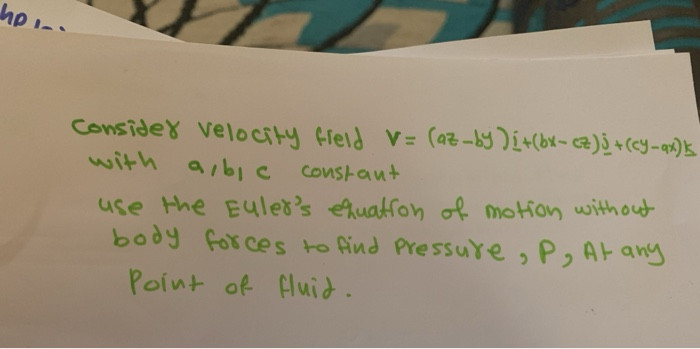 Consider velocity field V = (az-by)i+(bx-cz)j+(cy-ax)k
with a,b,c constant
use the Euler's equation of motion without
body forces to find pressure, P, At any
Point of fluid.